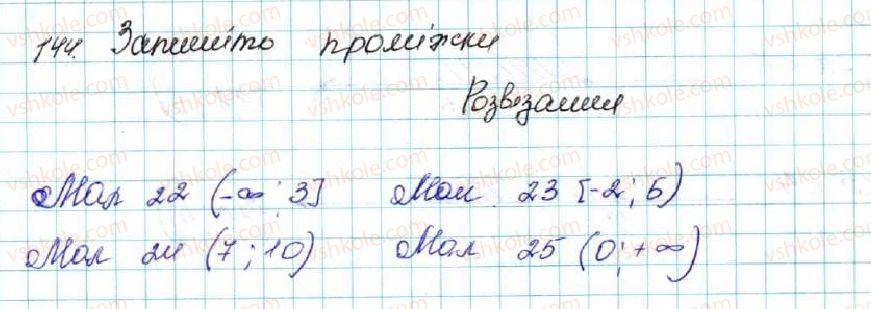 144. Запишіть проміжки
Розв'язання
Мал 22 (-∞; 3] Мал. 23 [-2; 5)
Мал 24 (7; 10) Мал 25 (0; +∞)